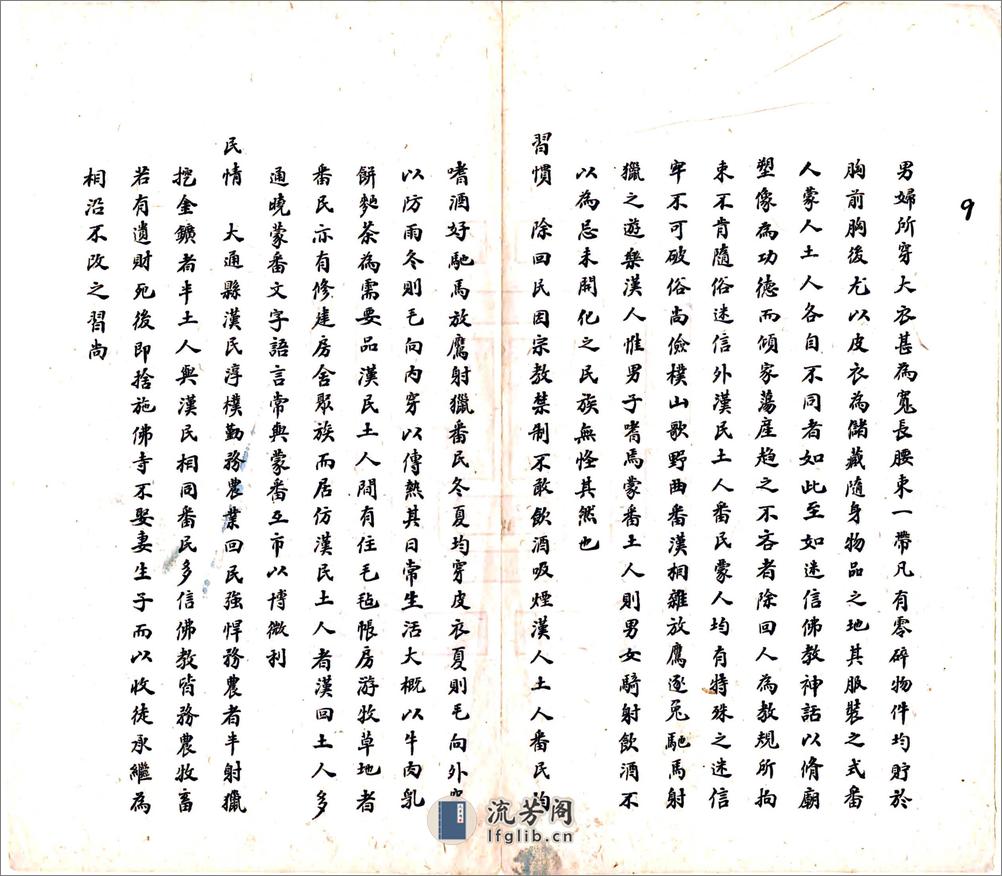 9
男婦所穿大衣甚為寬長腰束一帶凡有零碎物件均貯於
胸前胸後尤以皮衣為儲藏隨身物品之地其服裝之式番
人蒙人土人各自不同者如此至如迷信佛教神話以脩廟
塑像為功德而傾家蕩產趋之不吝者除回人為教規所拘
束不肯隨俗迷信外漢民土人番民蒙人均有特殊之迷信
牢不可破俗尚儉樸山歌野曲番漢相雜放鷹逐兔馳馬射
獵之遊樂漢人惟男子嗜焉蒙番土人則男女騎射飲酒不
以為忌未開化之民族無怪其然也
習慣 除回民因宗教禁制不敢飲酒吸煙漢人土人番民均
嗜酒好馳馬放鷹射獵番民冬夏均穿皮衣夏則毛向外穿
以防雨冬則毛向內穿以傳熱其日常生活大概以牛肉乳
餅麨茶為需要品漢民土人間有住毛毡帳房游牧草地者
番民亦有修建房舍聚族而居仿漢民土人者漢回土人多
通曉蒙番文字語言常與蒙番互市以博微利
民情 大通縣漢民淳樸勤務農業回民強悍務農者半射獵
挖金鑛者半土人與漢民相同番民多信佛教皆務農牧畜
若有遺財死後即捨施佛寺不娶妻生子而以收徒承繼為
相沿不改之習尚
流芳阁
lfglib.cn